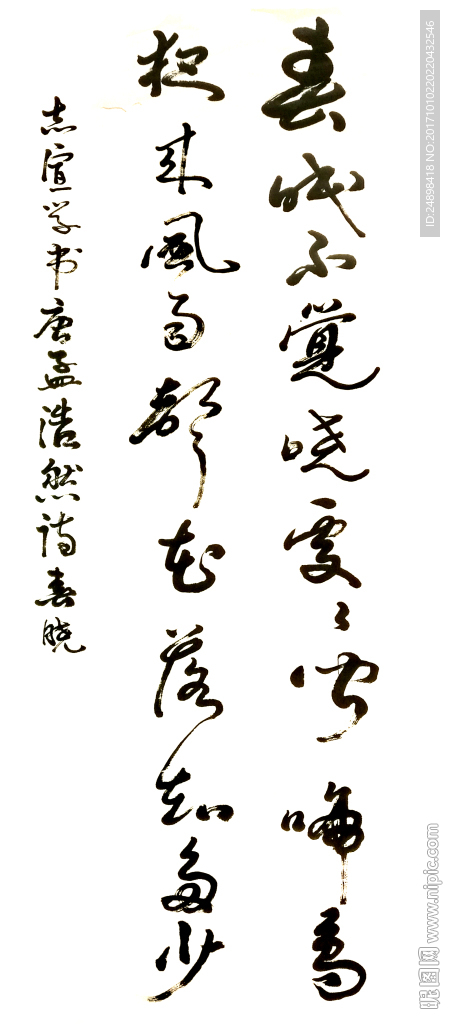 春眠不覺晓處々闻啼鸟
夜来風雨聲花落知多少
志宣学书唐孟浩然诗春晓
ID:24898418 NO:20171010220220432546
昵图网 www.nipic.com